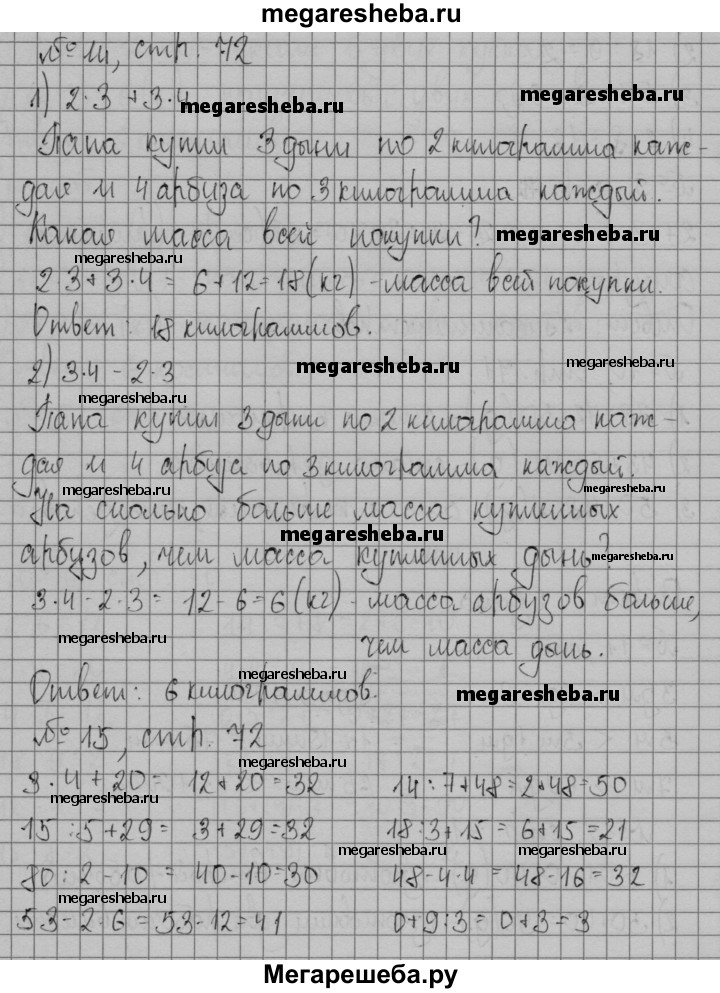 megaresheba.ru
№ 14, стр. 72
1) 2·3 + 3·4
megaresheba.ru
megaresheba.ru
Папа купил 3 дыни по 2 килограмма каж-
дая и 4 арбуза по 3 килограмма каждый.
Какая масса всей покупки?
megaresheba.ru
megaresheba.ru
2·3+3·4 = 6+12=18(кг) - масса всей покупки.
Ответ: 18 килограммов.
megaresheba.ru
megaresheba.ru
2) 3·4 - 2·3
megaresheba.ru
Папа купил 3 дыни по 2 килограмма каж-
дая и 4 арбуза по 3 килограмма каждый.
megaresheba.ru
megaresheba.ru
На сколько больше масса купленных
megaresheba.ru
арбузов, чем масса купленных дынь?
megaresheba.ru
3·4-2·3= 12-6=6(кг) - масса арбузов больше,
megaresheba.ru
чем масса дынь.
megaresheba.ru
Ответ: 6 килограммов.
megaresheba.ru
№ 15, стр. 72
3·4+20= 12+20=32 14:7+48=2+48=50
megaresheba.ru
megaresheba.ru
15:5+29= 3+29=32 18:3+15= 6+15=21
megaresheba.ru
megaresheba.ru
80:2-10 = 40-10=30 48-4·4 = 48-16=32
megaresheba.ru
53-2·6=53-12=41 0+9:3= 0+3=3
Мегарешеба.ру